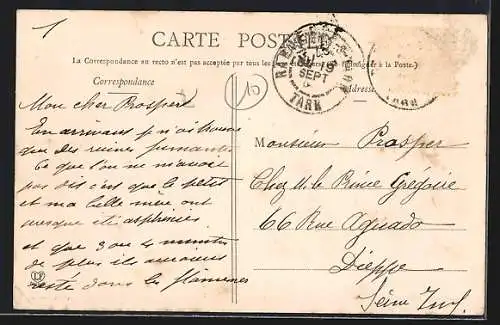 1
CARTE POST
La Correspondance au recto n'est pas acceptée par tous les
à la Poste.)
Correspondance
Adresse
SEPT
TARN
10
Mon cher Prosper
En arrivant je n'ai trouvé
que des ruines fumantes
Ce que l'on ne m'avait
pas dit c'est que le petit
et ma belle mère ont
presque été asphyxiés
et que 3 ou 4 minutes
de plus ils auraient
resté dans les flammes
Monsieur Prosper
Chez M. le Prince Grégoire
66 Rue Aguado
Dieppe
Seine Inf.